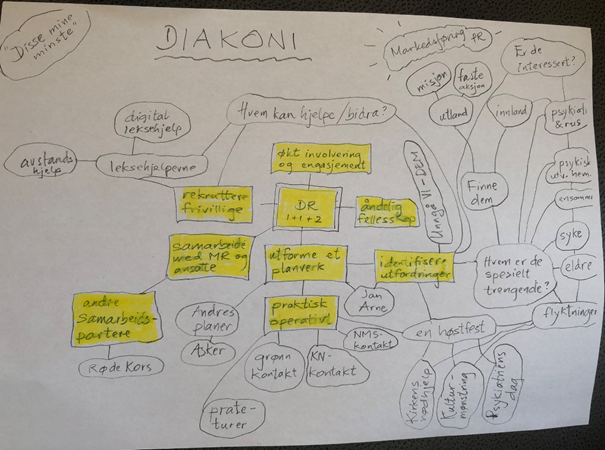 "Disse mine
minste"
DIAKONI
Markedsføring PR
Er de
interessert?
misjon
faste
aksjon
digital
leksehjelp
Hvem kan hjelpe/bidra?
utland
innland
psykiatri
& rus
avstands
hjelp
leksehjelperne
økt involvering
og engasjement
Unngå VI-DEM
psykisk
utv. hem.
rekruttere
frivillige
DR
1+1+2
åndelig
fellesskap
Finne
dem
ensomme
samarbeid
med MR og
ansatte
utforme et
planverk
identifisere
utfordringer
Hvem er de
spesielt
trengende?
syke
eldre
andre
samarbeids-
partere
Andres
planer
praktisk
operativt
Jan
Arne
flyktninger
NMS-
kontakt
en høstfest
Røde Kors
Asker
grønn
kontakt
KN-
kontakt
Kirkens
nødhjelp
Kultur-
mønstring
Psykiatriens
dag
prate-
turer